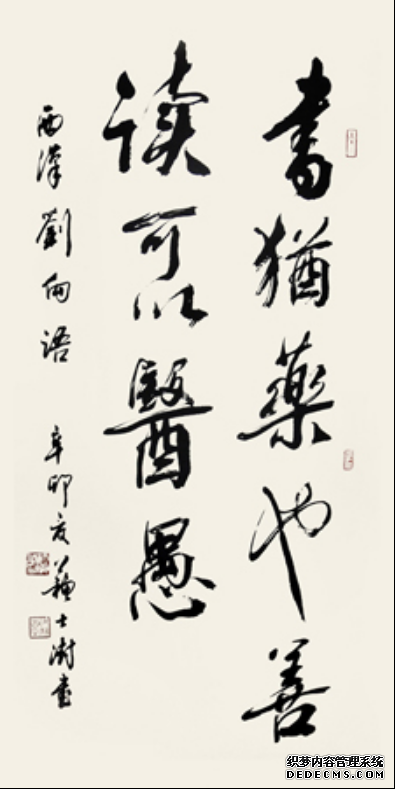 書猶藥也善
读可以醫愚
西漢劉向语
辛卯夏苏士澍書
织梦内容管理系统
DEDECMS.COM